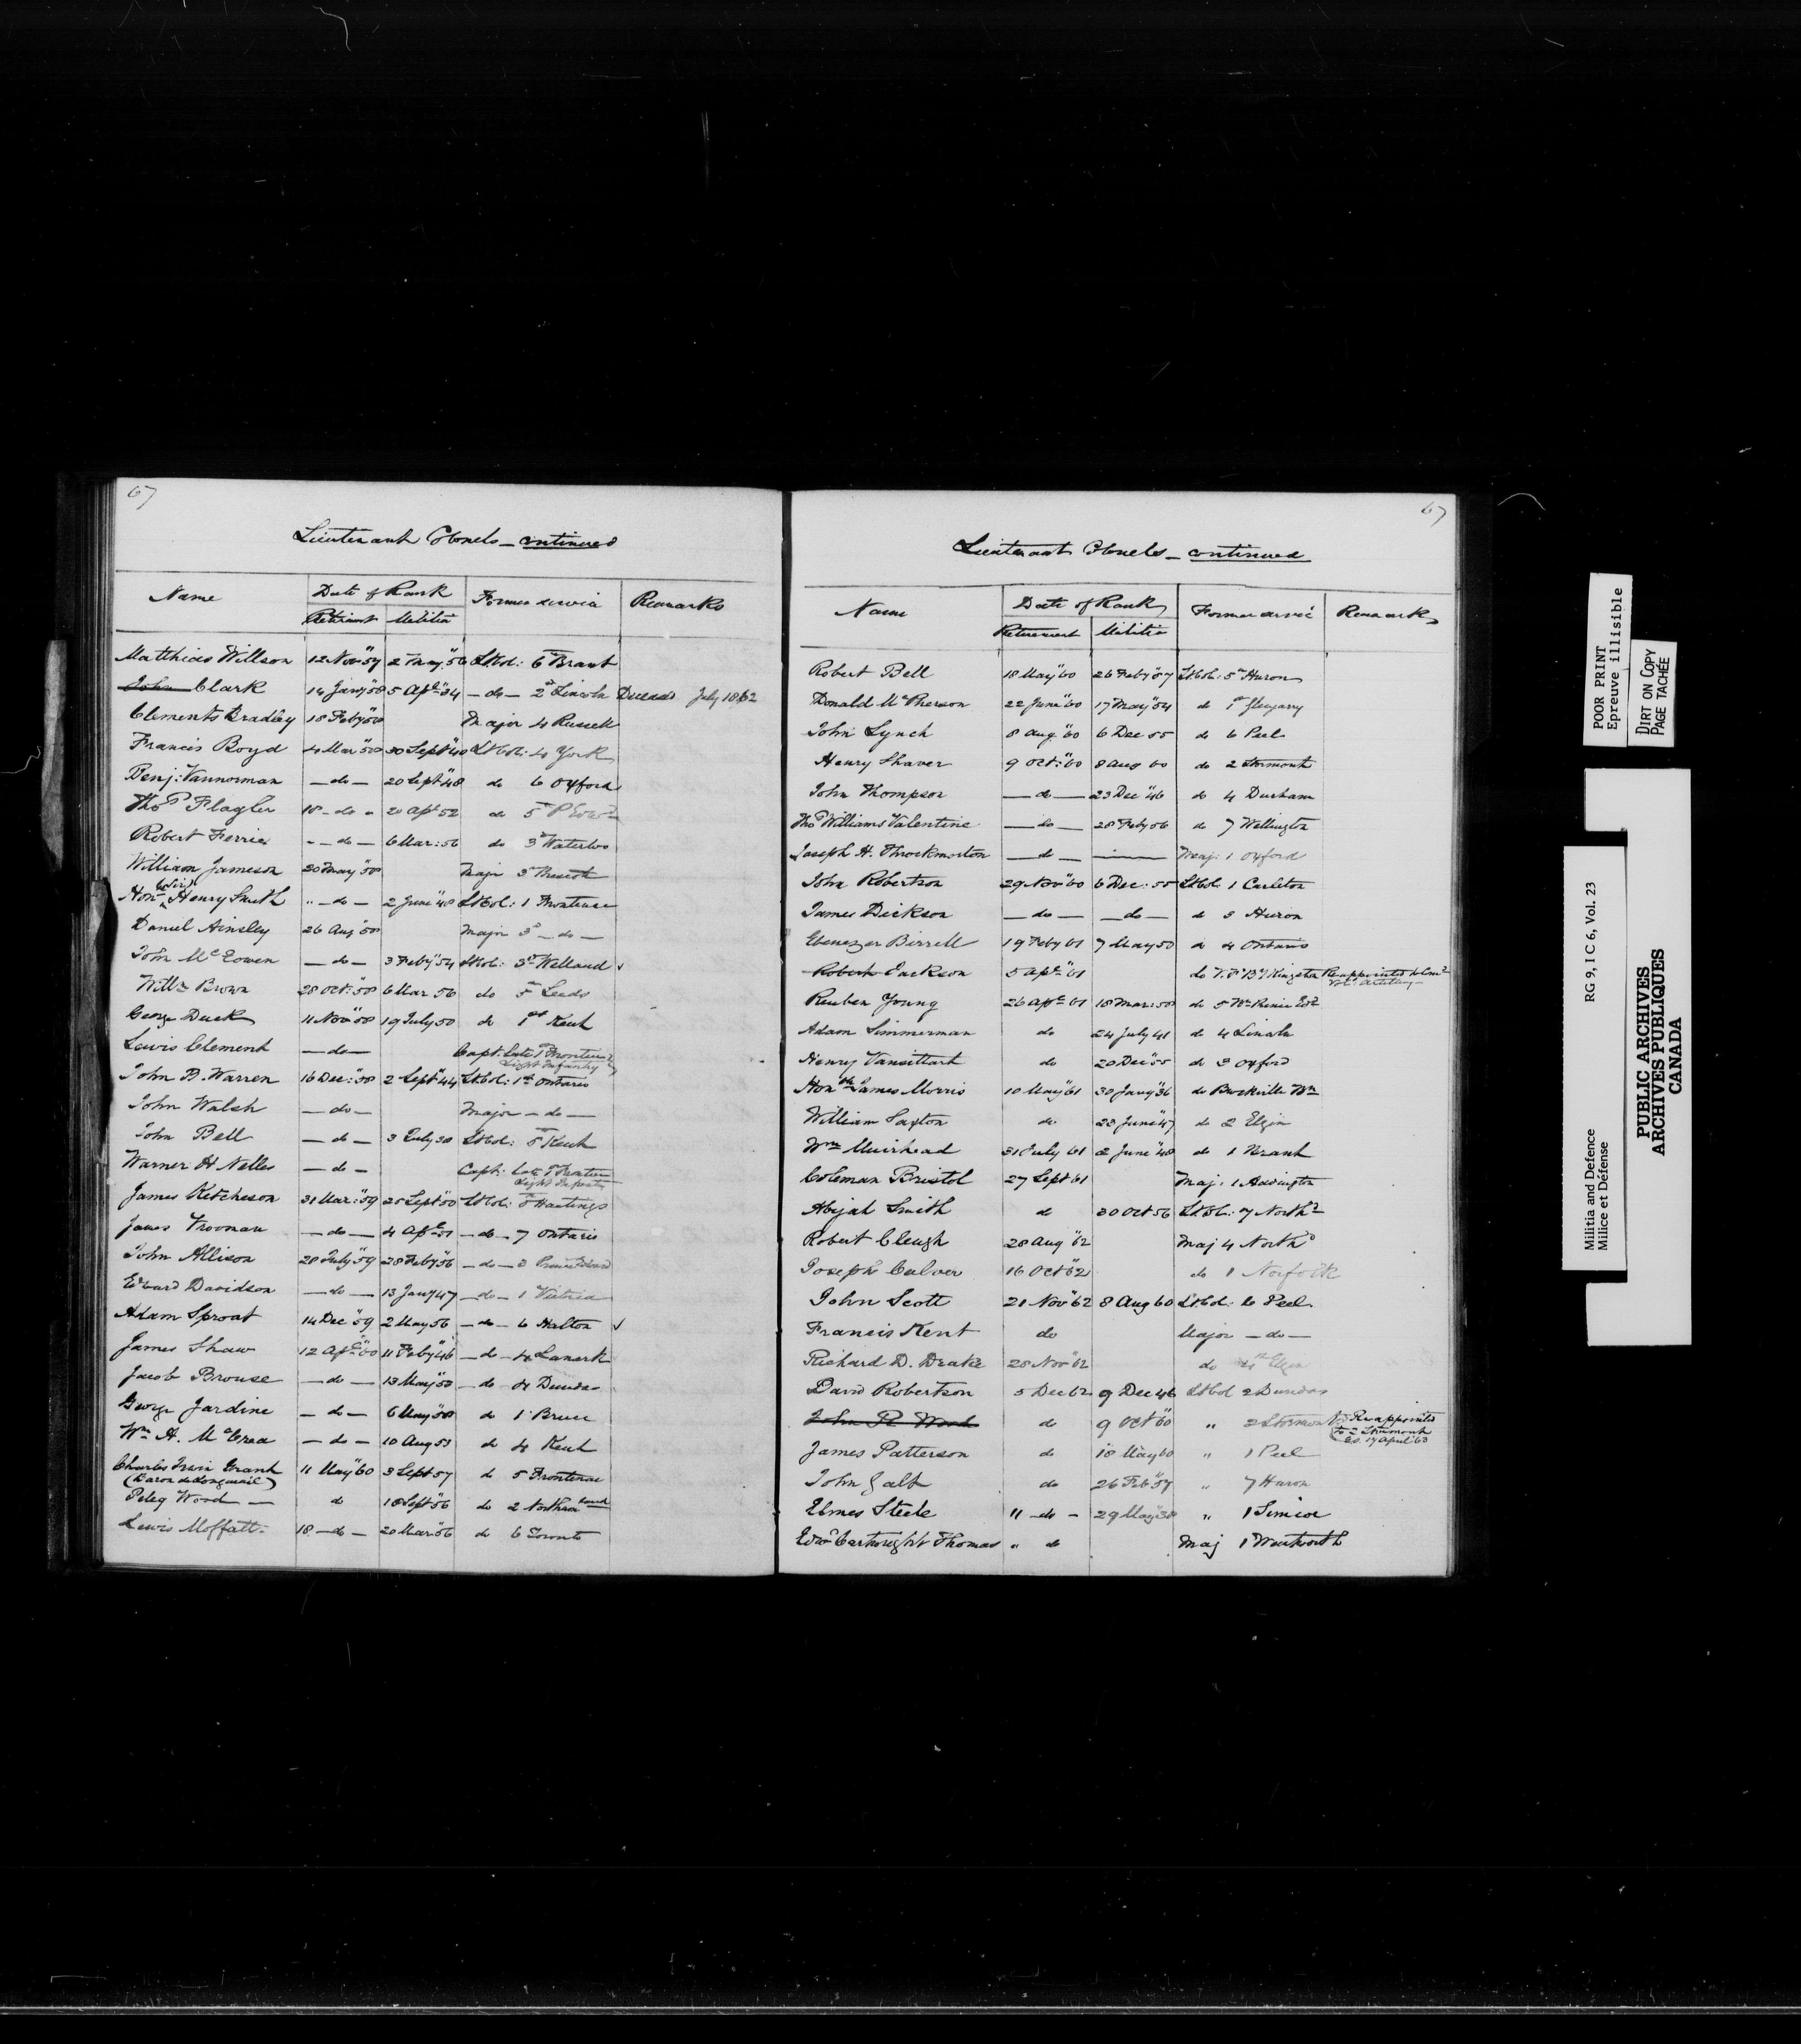 67
Lieutenant Colonels – continued
Name Date of Rank Former service Remarks
Retirement Militia
Matthias Willson 12 Nov 57 2 May 56 Lt Col: 6 Brant
John Clark 14 Jany 58 5 Apl 34 – do – 2 Lincoln Deceased July 1862
Clements Bradley 18 Feby 58 Major 4 Russell
Francis Boyd 4 Mar 58 30 Sept 40 Lt Col: 4 York
Benj: Vannorman – do – 20 Sept 48 do 6 Oxford
Thos Flagler 18 – do – 20 Apl 52 do 5
Robert Ferrie – do – 6 Mar: 56 do 3 Waterloo
William Jameson 20 May 58 Major 3
Hon (Sir) Henry Smith " – do – 2 June 48 Lt Col: 1 Frontenac
Daniel Ainsley 26 Aug 58 Major 3 – do –
John McEowen – do – 3 Feby 54 Lt Col: 3 Welland ✓
Willm Brown 28 Oct: 58 6 Mar 56 do 5 Leeds
George Duck 11 Nov 58 19 July 50 do 1st Kent
Lewis Clement – do – Capt. Late
Light Infantry
John B. Warren 16 Dec: 58 2 Sept 44 Lt Col: 1st Ontario
John Walsh – do – Major – do –
John Bell – do – 3 July 30 Lt Col: Kent
Warner H Nelles – do – Capt: Late
Light Infantry
James Ketcheson 31 Mar: 59 25 Sept 50 Lt Col: Hastings
James Vrooman – do – 4 Apl 51 – do – 7 Ontario
John Allison 28 July 59 28 Feby 56 – do – 3 Prince Edward
Edward Davidson – do – 13 Jany 47 – do – 1 Victoria
Adam Sproat 14 Dec 59 2 May 56 – do – 6 Halton ✓
James Shaw 12 Apl 60 11 Feby 46 – do – 4 Lanark
Jacob Brouse – do – 13 May 50 – do 4 Dundas
George Jardine – do – 6 May 58 do 1 Bruce
Wm A. McCrea – do – 10 Aug 53 do 4 Kent
Charles Irwin Grant 11 May 60 3 Sept 57 do 5 Frontenac
(Baron de Longueuil)
Peleg Wood – do 18 Sept 56 do 2 Northumberland
Lewis Moffatt 18 – do – 20 Mar 56 do 6 Toronto
67
Lieutenant Colonels – continued
Name Date of Rank Former service Remarks
Retirement Militia
Robert Bell 18 May 60 26 Feby 57 Lt Col: 5 Huron
Donald McPherson 22 June 60 17 May 54 do 1st Glengarry
John Lynch 8 Aug 60 6 Dec 55 do 6 Peel
Henry Shaver 9 Oct: 60 8 Aug 60 do 2 Stormont
John Thompson – do – 23 Dec 46 do 4 Durham
Thos Williams Valentine – do – 28 Feby 56 do 7 Wellington
Joseph H. Throckmorton – do – Maj: 1 Oxford
John Robertson 29 Nov 60 6 Dec: 55 Lt Col: 1 Carleton
James Dickson – do – – do – do 3 Huron
Ebenezer Birrell 19 Feby 61 7 May 50 do 4 Ontario
Robert Jackson 5 Apl 61 do Kingston Reappointed
Vol: Artillery
Reuben Young 26 Apl 61 18 Mar: 58 do 5
Adam Simmerman do 24 July 41 do 4 Lincoln
Henry Vansittart do 20 Dec 55 do 3 Oxford
Honble James Morris 10 May 61 30 Jany 36 do Brockville
William Saxton do 23 June 47 do 2 Elgin
Wm Muirhead 31 July 61 2 June 48 do 1 Brant
Coleman Bristol 27 Sept 61 Maj: 1 Addington
Abijah Smith do 30 Oct 56 Lt Col: 7 North
Robert Cleugh 28 Aug 62 Maj 4 North
Joseph Culver 16 Oct 62 do 1 Norfolk
John Scott 21 Nov 62 8 Aug 60 Lt Col: 6 Peel
Francis Kent do Major – do –
Richard D. Drake 28 Nov 62 do 4th Elgin
David Robertson 5 Dec 62 9 Dec 46 Lt Col 2 Dundas
John R Wood do 9 Oct 60 " 2 Stormont Reappointed
to 2 Stormont
17 April 63
James Patterson do 18 May 60 " 1 Peel
John Galt do 26 Feb 57 " 7 Huron
Elmes Steele 11 – do – 29 May 38 " 1 Simcoe
Edwd Cartwright Thomas " do Maj 1 Wentworth
POOR PRINT
Epreuve illisible
DIRT ON COPY
PAGE TACHÉE
Militia and Defence RG 9, I C 6, Vol. 23
Milice et Défense
PUBLIC ARCHIVES
ARCHIVES PUBLIQUES
CANADA